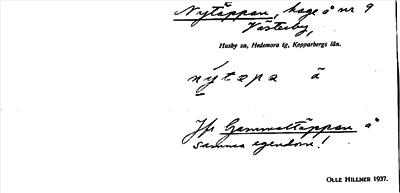 Nytäppan, hage å nr 9
Västerby,
Husby sn, Hedemora tg, Kopparbergs län.
nýtɛpa ä
Jfr Gammeltäppan å
samma egendom!
OLLE HILLNER 1937.